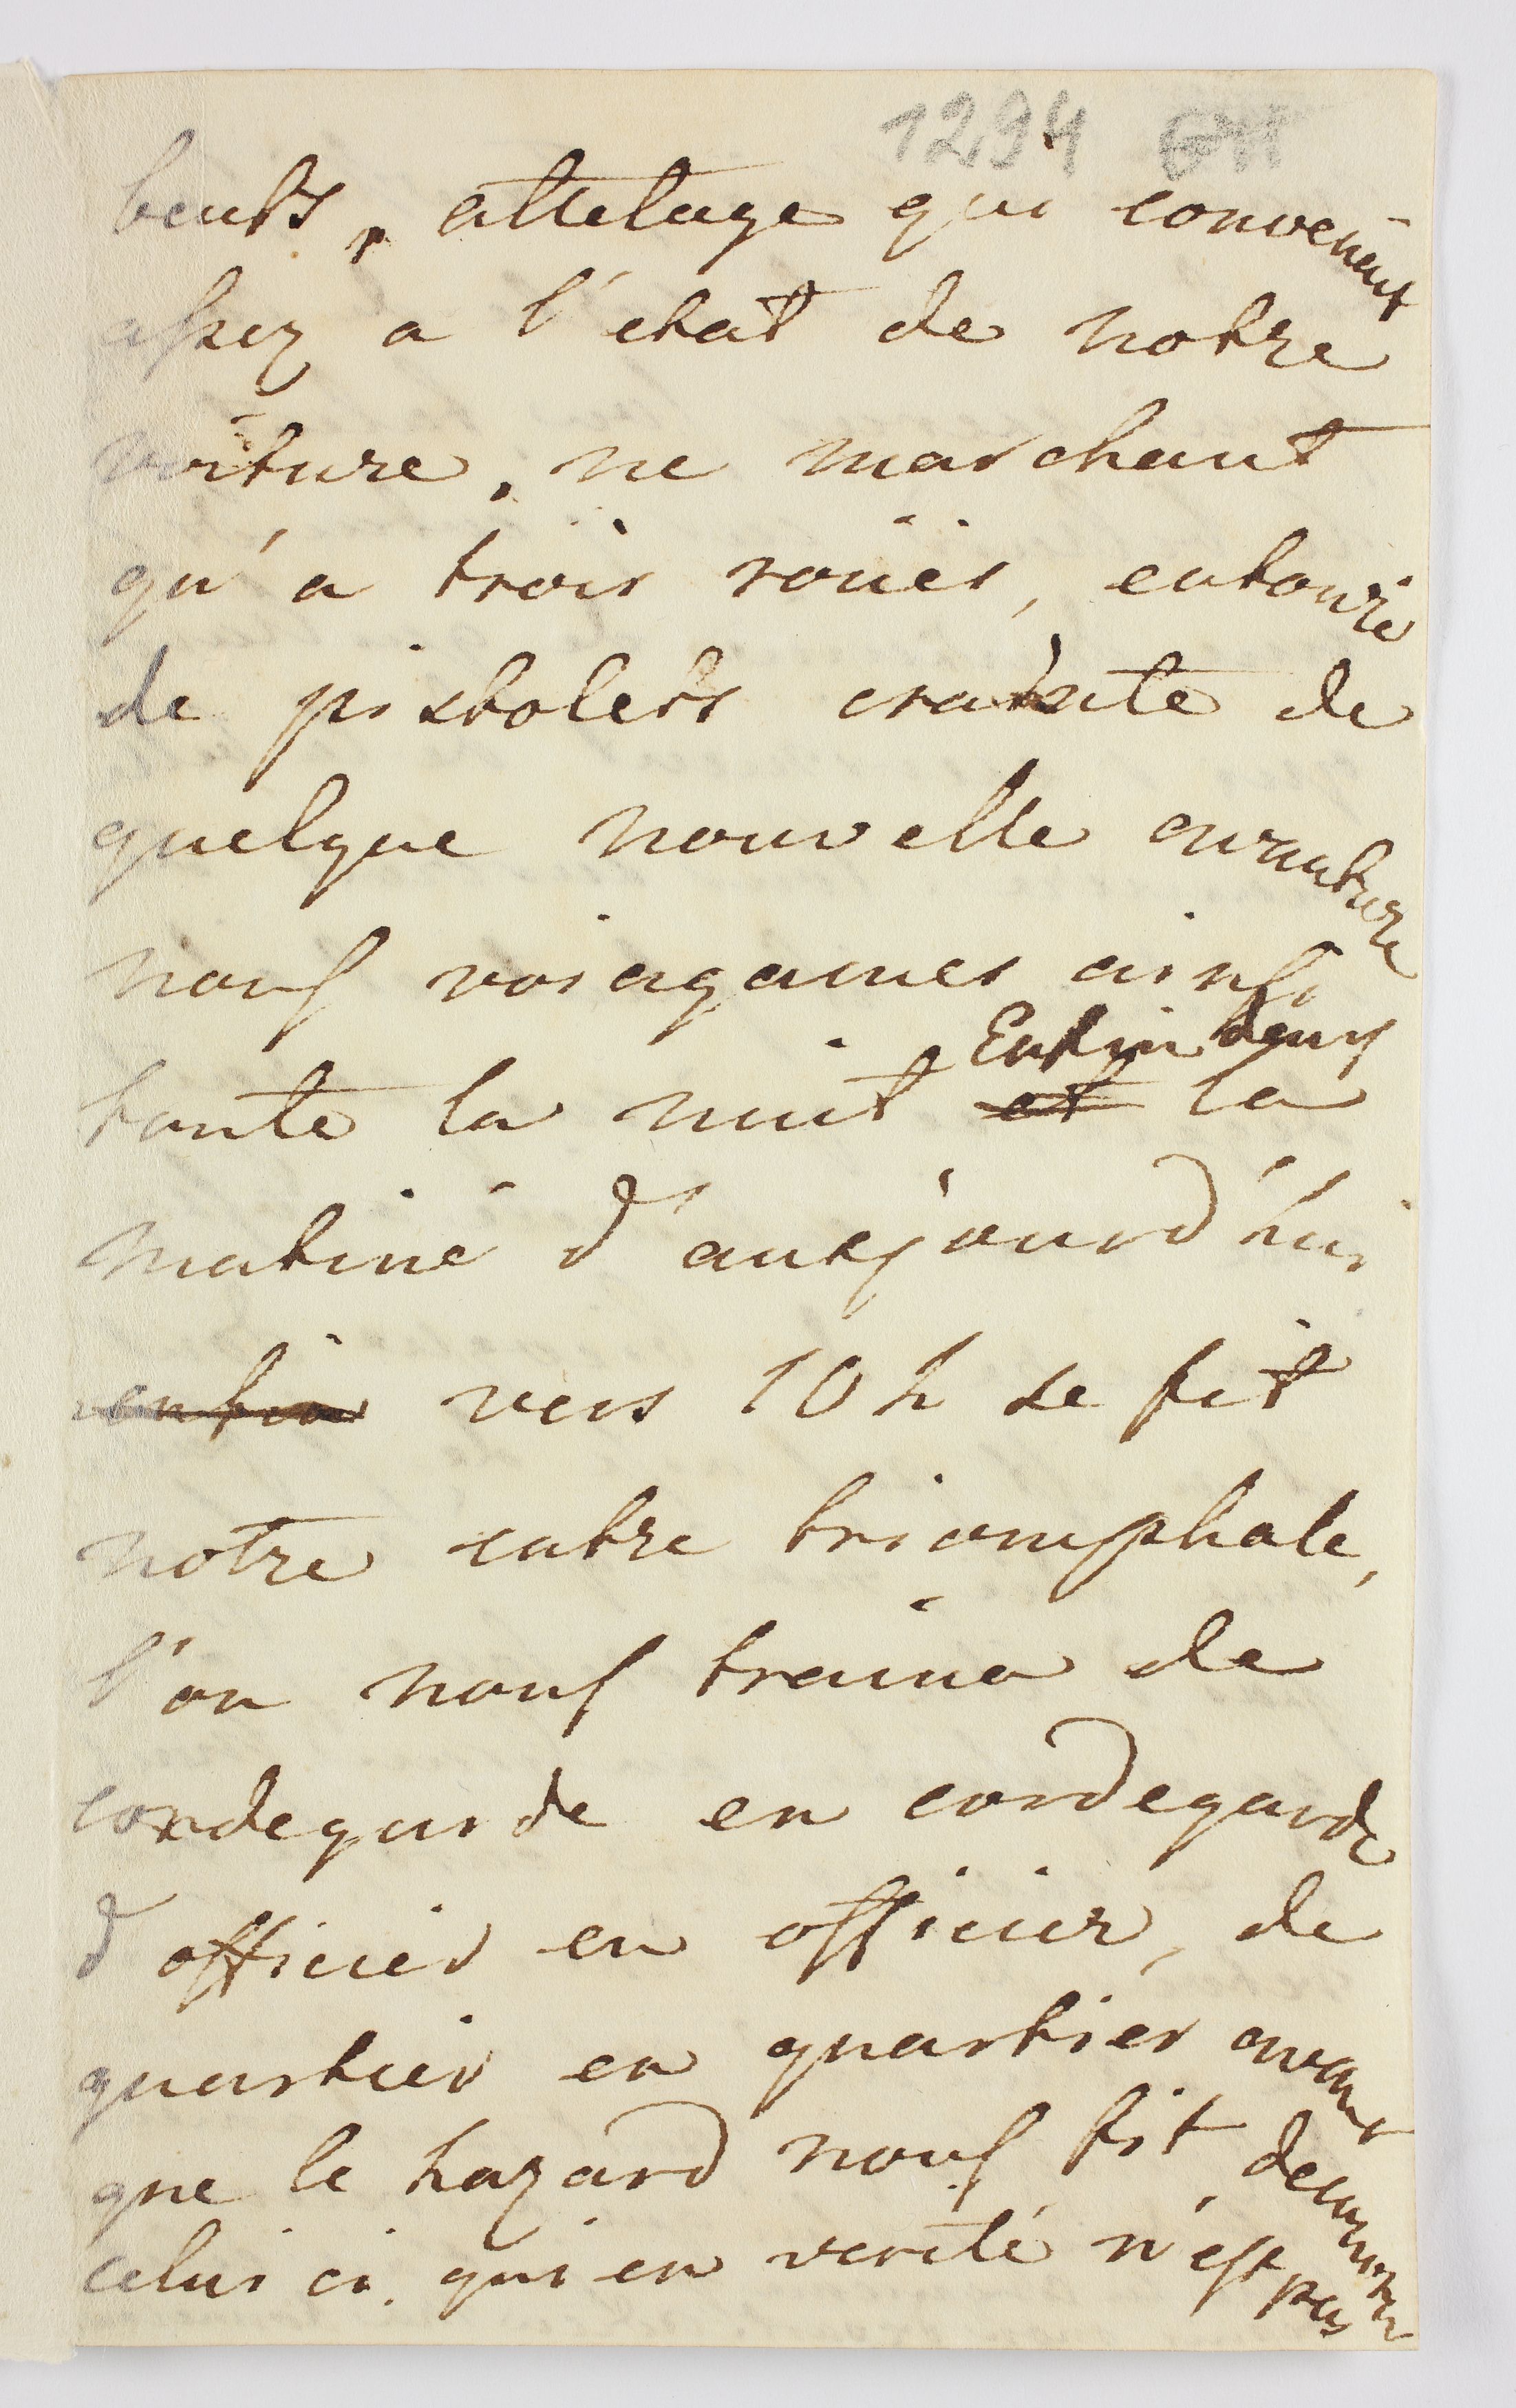 1294
beufs, attelage qui convenent
assez a l'etat de notre
voiture, ne marchant
qu'a trois roües, entouré
de pistolets crainte de
quelque nouvelle avanture
nous voiagames ainsi
Enfin dans
toute la nuit et la
matiné d'aux̀jourd'hui
enfin vers 10 h se fit
notre entre triomphale,
l'on nous traina de
cordegarde en cordegarde
d'officier en officier, de
quartier en quartier avant
que le hazard nous fit decouvrir
celui ci. qui en verité n'est pas